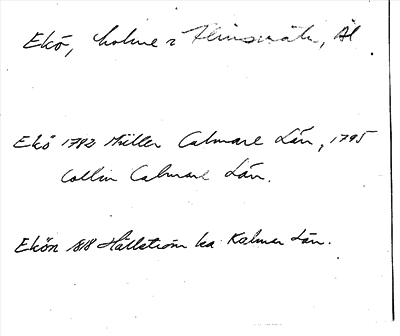 Ekö, holme i Flivsnäs, Ål
Ekö 1782 Müller Calmare Län, 1795
Collin Calmare Län.
Ekön 1818 Hällström ka Kalmar Län.